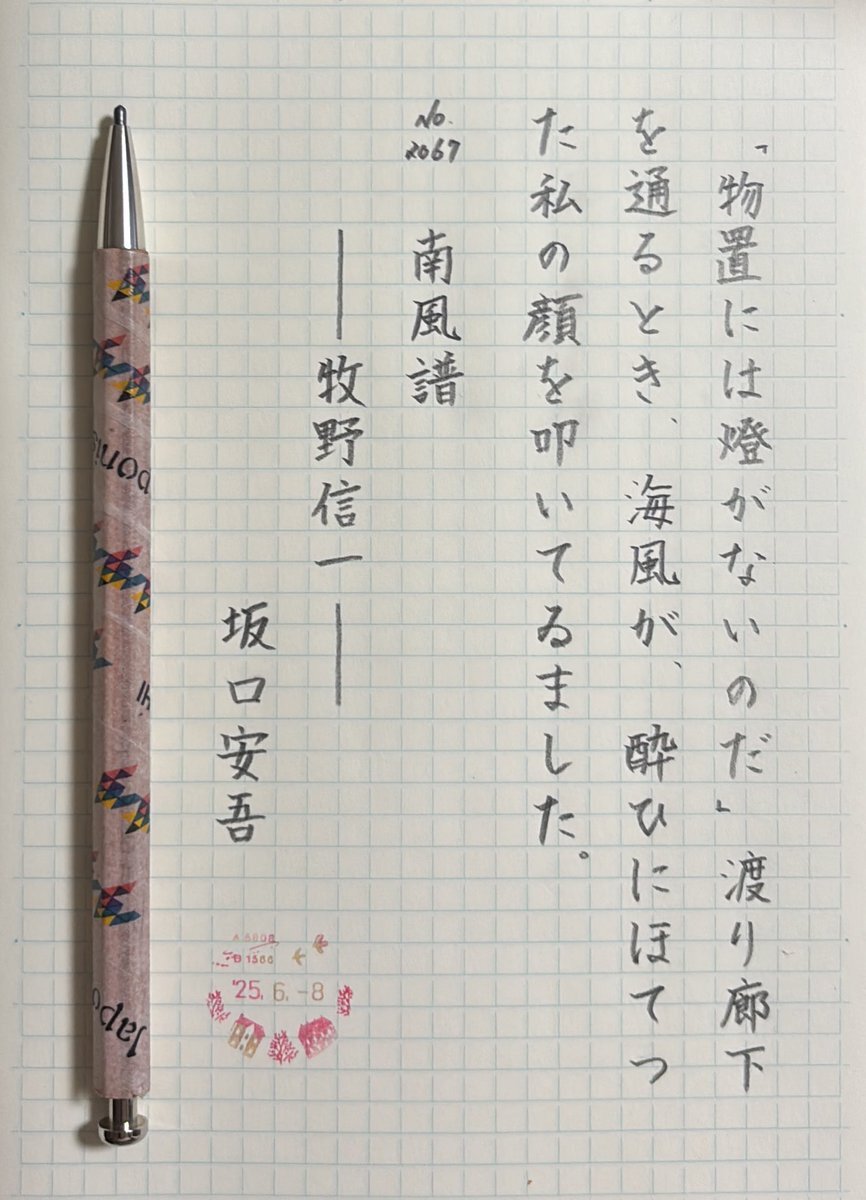 「物置には燈がないのだ」渡り廊下
を通るとき、海風が、酔ひにほてつ
た私の顔を叩いてゐました。
No.
2067
南風譜
――牧野信一――
坂口安吾
'25.6.-8